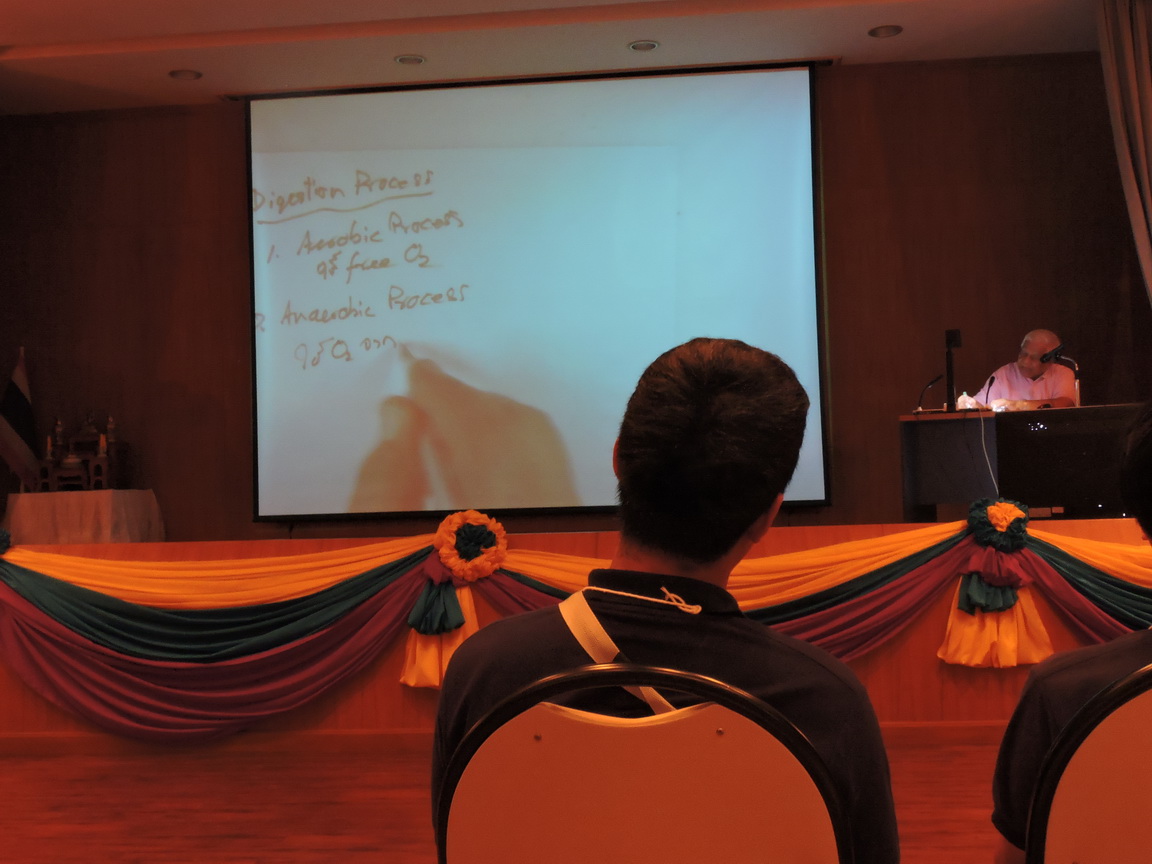 Digestion Process
1. Aerobic Process
ใช้ free O₂
2. Anaerobic Process
ใช้ O₂ จาก